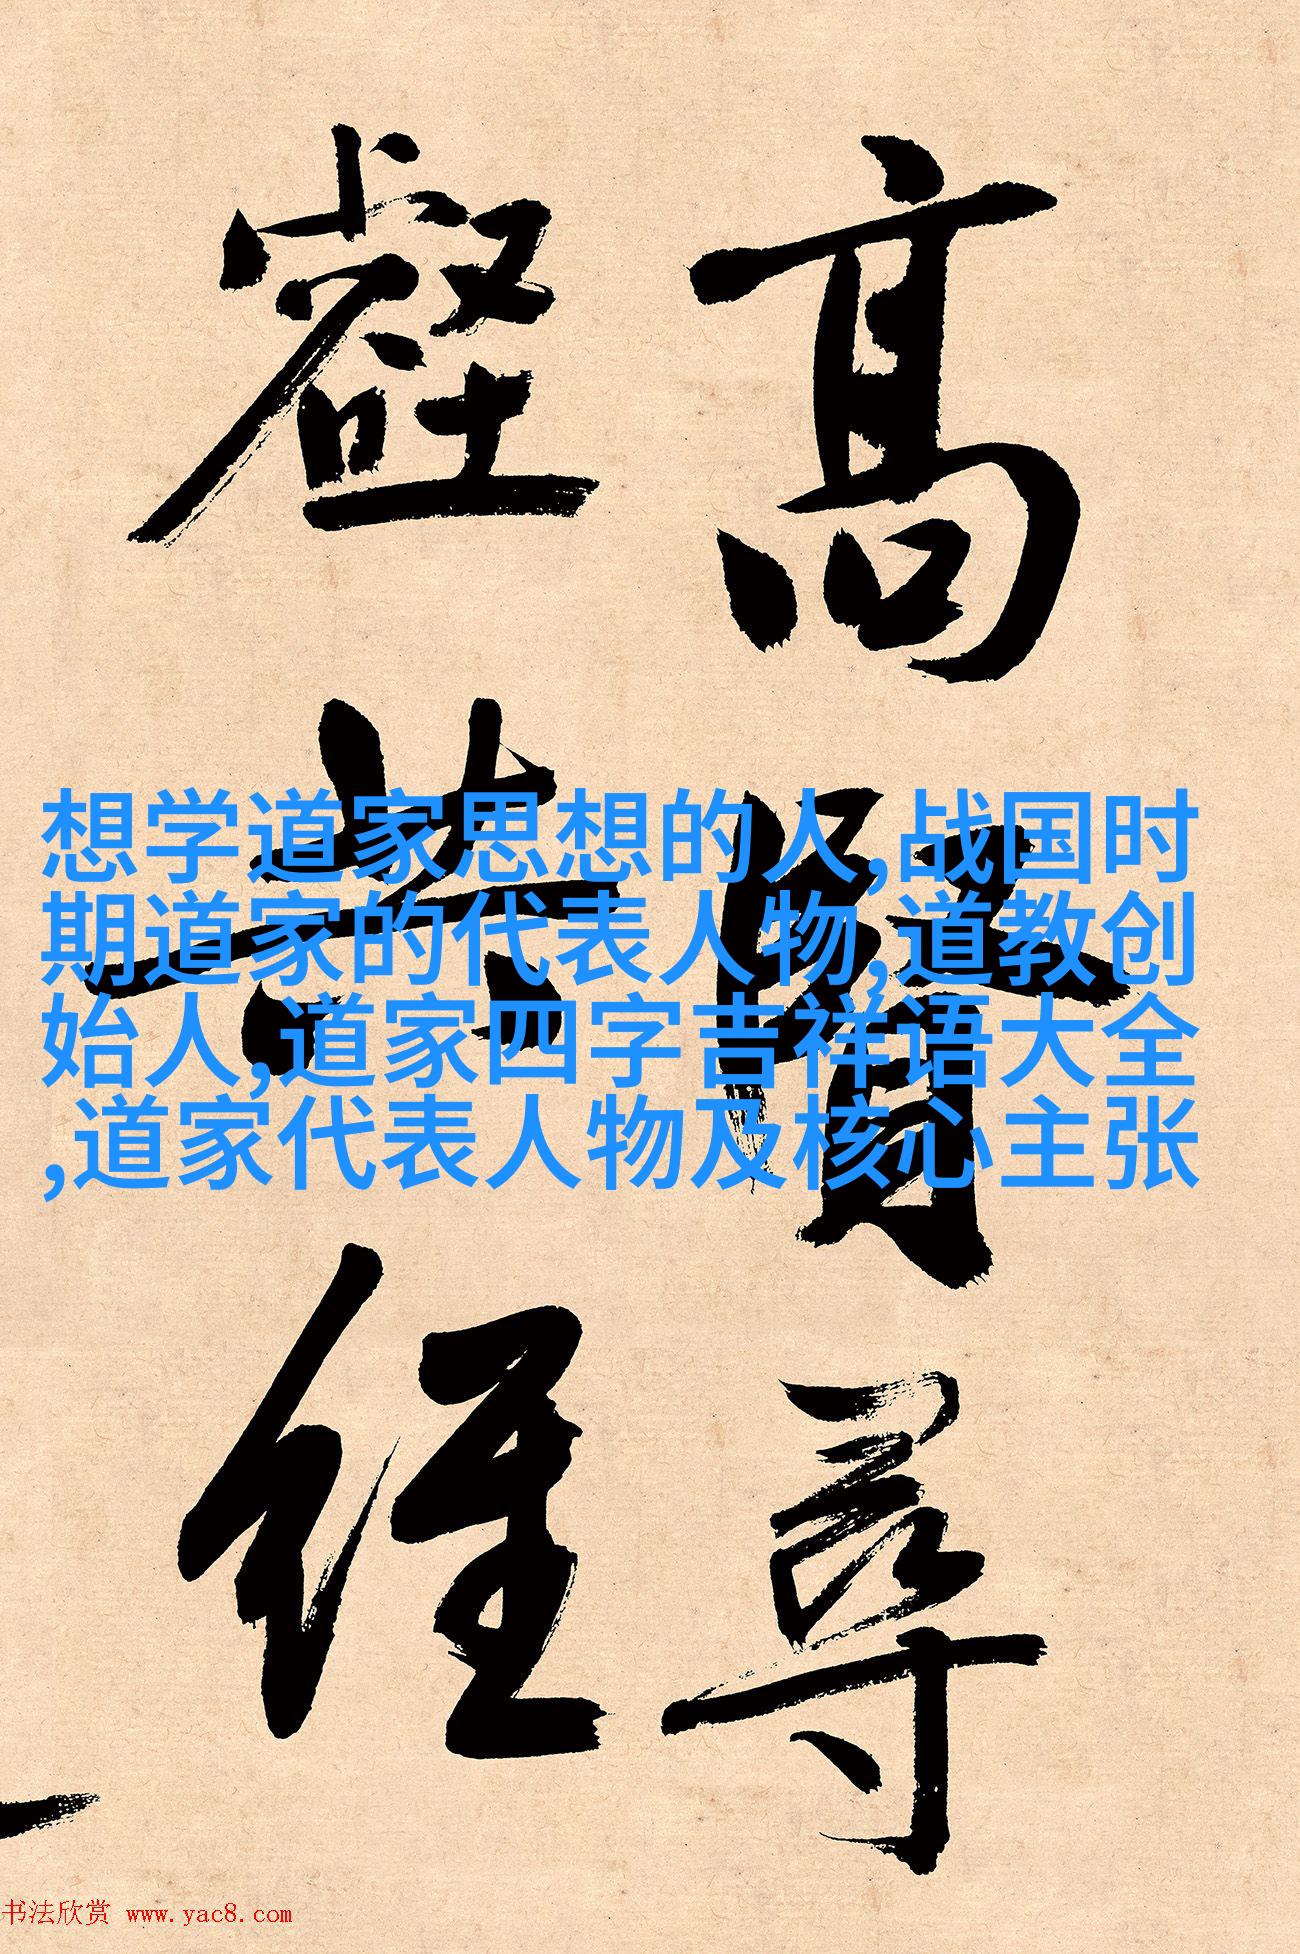 高賢尋
壑共經
想学道家思想的人,战国时
期道家的代表人物,道教创
始人,道家四字吉祥语大全
,道家代表人物及核心主张
书法欣赏 www.yac8.com